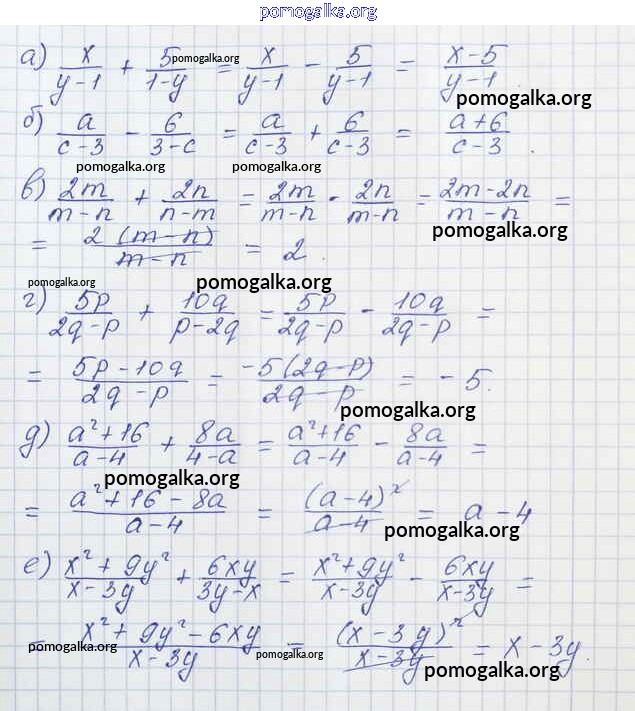 pomogalka.org
а) x/(y-1) + 5/(1-y) = x/(y-1) - 5/(y-1) = (x-5)/(y-1)
pomogalka.org
pomogalka.org
б) a/(c-3) - 6/(3-c) = a/(c-3) + 6/(c-3) = (a+6)/(c-3).
pomogalka.org pomogalka.org
в) 2m/(m-n) + 2n/(n-m) = 2m/(m-n) - 2n/(m-n) = (2m-2n)/(m-n) =
pomogalka.org
= 2(m-n)/(m-n) = 2.
pomogalka.org pomogalka.org
г) 5p/(2q-p) + 10q/(p-2q) = 5p/(2q-p) - 10q/(2q-p) =
= (5p-10q)/(2q-p) = -5(2q-p)/(2q-p) = -5.
pomogalka.org
д) (a²+16)/(a-4) + 8a/(4-a) = (a²+16)/(a-4) - 8a/(a-4) =
pomogalka.org
= (a²+16-8a)/(a-4) = (a-4)²/(a-4) = a-4
pomogalka.org
е) (x²+9y²)/(x-3y) + 6xy/(3y-x) = (x²+9y²)/(x-3y) - 6xy/(x-3y) =
= (x²+9y²-6xy)/(x-3y) = (x-3y)²/(x-3y) = x-3y.
pomogalka.org pomogalka.org
pomogalka.org